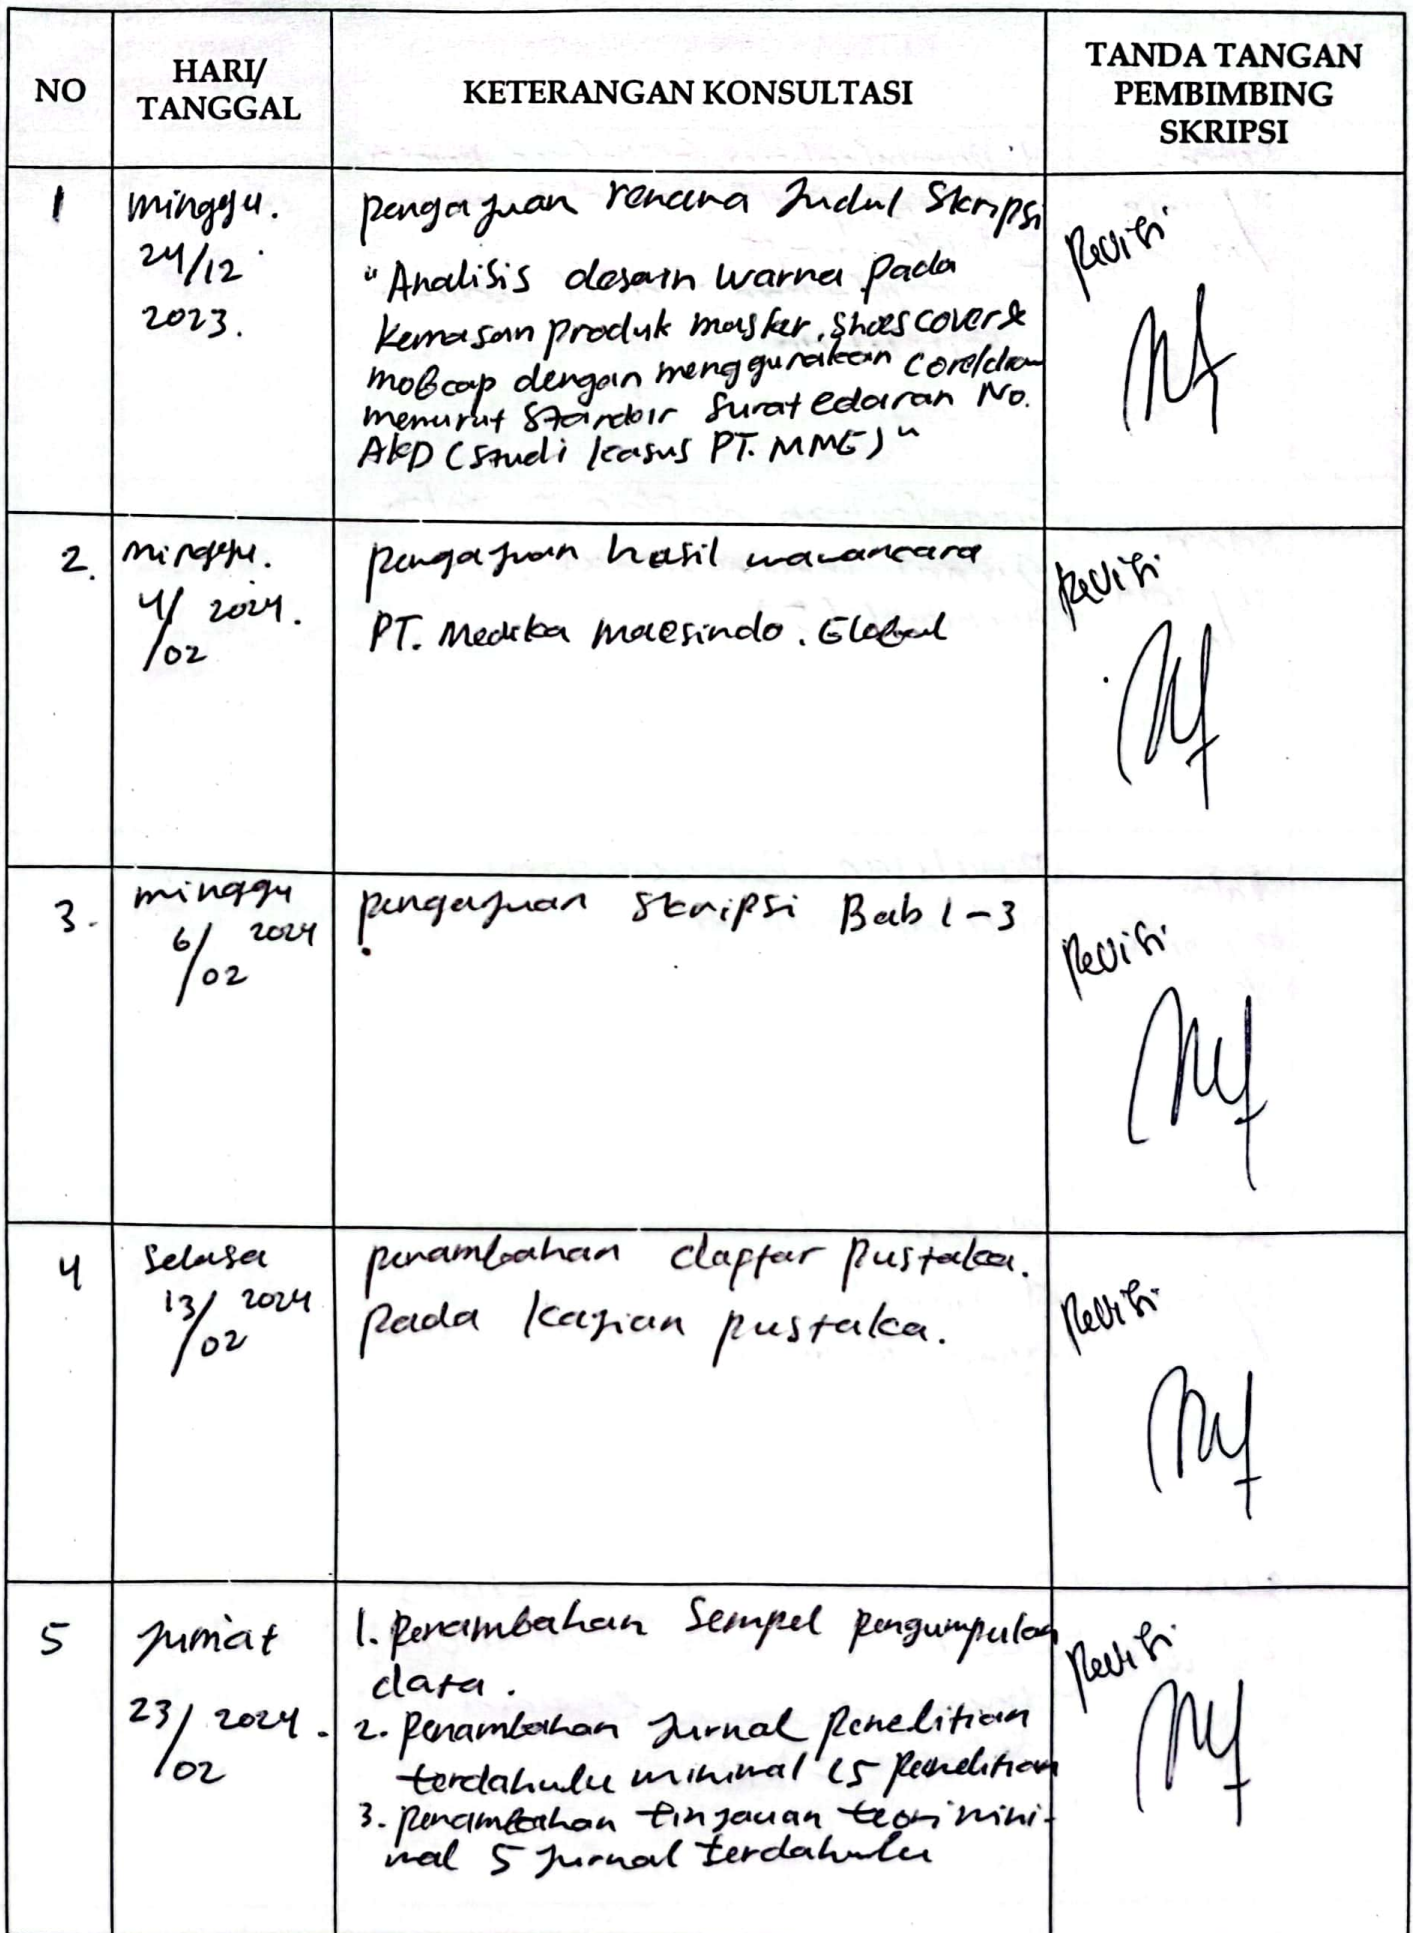 NO
HARI/
TANGGAL
KETERANGAN KONSULTASI
TANDA TANGAN
PEMBIMBING
SKRIPSI
1
minggu.
24/12
2023.
pengajuan rencana Judul Skripsi
"Analisis desain warna pada
kemasan produk masker, shoes cover &
mobcap dengan menggunakan coreldraw
menurut standar surat edaran No.
AKD (studi kasus PT. MMG)"
Revisi
2.
minggu.
4/02 2024.
pengajuan hasil wawancara
PT. Medika maesindo. Global
Revisi
3.
minggu
6/02 2024
pengajuan skripsi Bab 1-3
Revisi
4
selasa
13/02 2024
penambahan daftar pustaka.
pada kajian pustaka.
Revisi
5
jumat
23/02 2024.
1. penambahan Sempel pengumpulan
data.
2. penambahan jurnal penelitian
terdahulu minimal 15 penelitian
3. penambahan tinjauan teori mini-
mal 5 jurnal terdahulu
Revisi